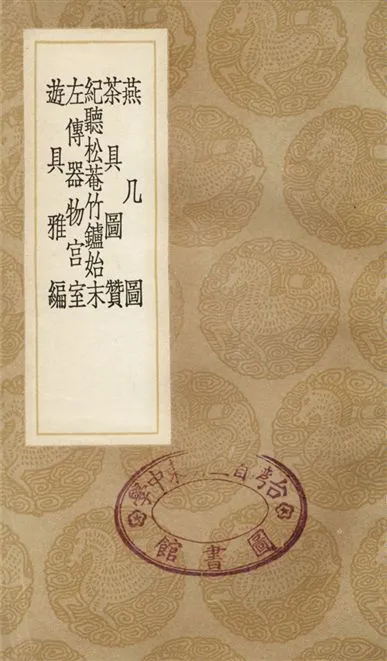 燕几圖
茶具圖贊
紀聽松菴竹鑪始末
左傳器物宮室
遊具雅編
東中學
圖書館